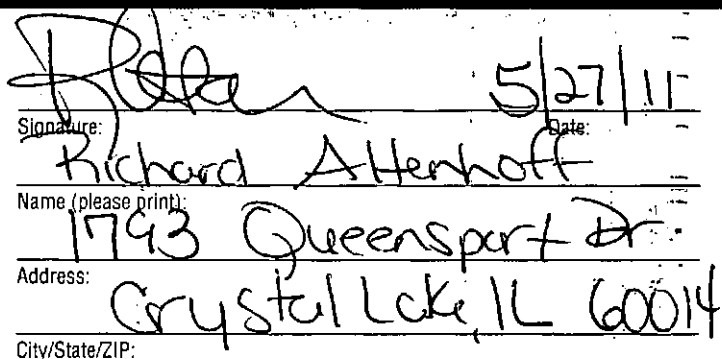 5/27/11
Signature: Date:
Richard Altenhoff
Name (please print):
1793 Queensport Dr.
Address:
Crystal Lake, IL 60014
City/State/ZIP: